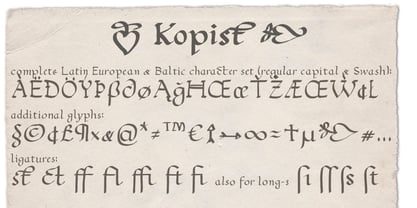 Kopist
complete Latin European & Baltic character set (regular capital & Swash):
ÀËĐÖÝÞβðøĄğĦŒœŤŻÆŒW&Ł
additional glyphs:
§©¢£¶×&@*≠™€∞≈†µ#...
ligatures:
st ct ff fl ffi ft fi also for long-s ſi ſſ ſs ſt